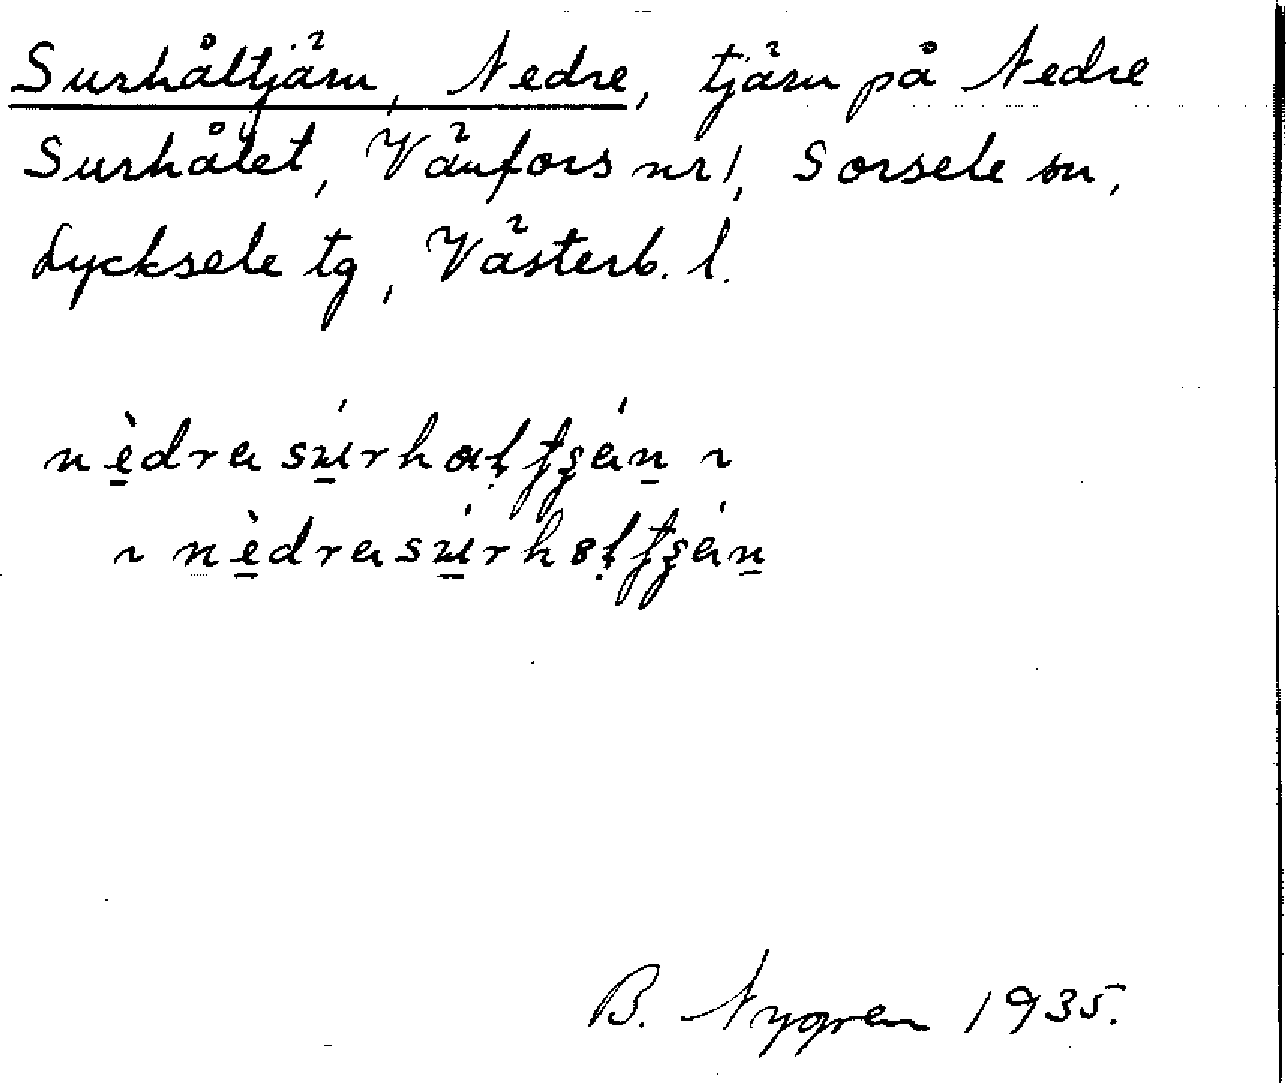 Surhåltjärn, Nedre, tjärn på Nedre
Surhålet, Vänfors nr 1, Sorsele sn,
Lycksele tg, Västerb. l.
B. Nygren 1935.